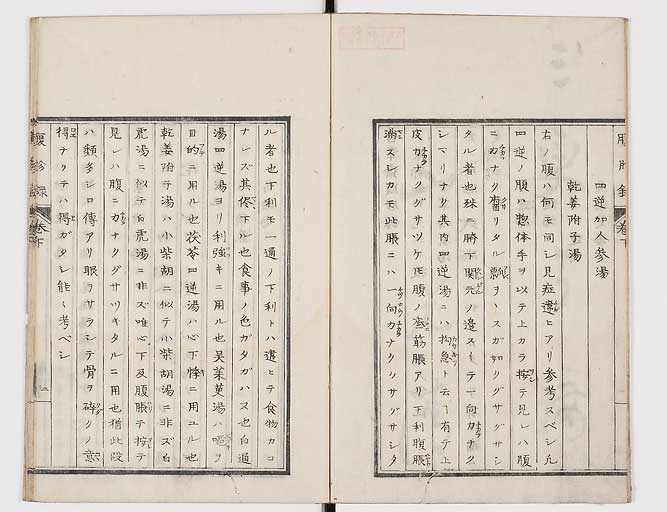 四逆加人参湯
乾姜附子湯
右ノ腹ハ何モ同シ見症違ヒアリ参考スベシ凡
四逆ノ腹ハ惣体手ヲ以テ上カラ按テ見レハ腹
ニカナク畜リタル瓢ヲヽスガ如クグサグサン
シテリナク其内四逆湯ニハ拘急ト云フ有テ上
タル者也殊ニ臍下関元ノ邊スヘテ一向カナク
皮カナクグサツケ㽲腹ノ底筋脹アリ下利腹脹
満スレカモ此脹ニハ一向カナクグサグサシタ
ル者也下利モ一通ノ下利トハ違ヒテ食物カコ
ナレズ其侭下ル也食事ノ色ガタガハス也白通
湯四逆湯ヨリ利強キニ用ル也呉茱萸湯ハ嘔ヲ
目的ニ用ル也茯苓四逆湯ハ心下悸ニ用ユル也
乾姜附子湯ハ小柴胡ニ似テ小柴胡湯ニ非ズ白
虎湯ニ似テ白虎湯ニ非ズ唯心下及腹脹テ按テ
見レハ腹ニカナクグサツキタルニ用也猶此段
ハ類多シ口傳アリ眼ヲサラシテ骨ヲ砕クノ意
得ナクテハ得ガタシ能々考ベシ
腹診録
卷下